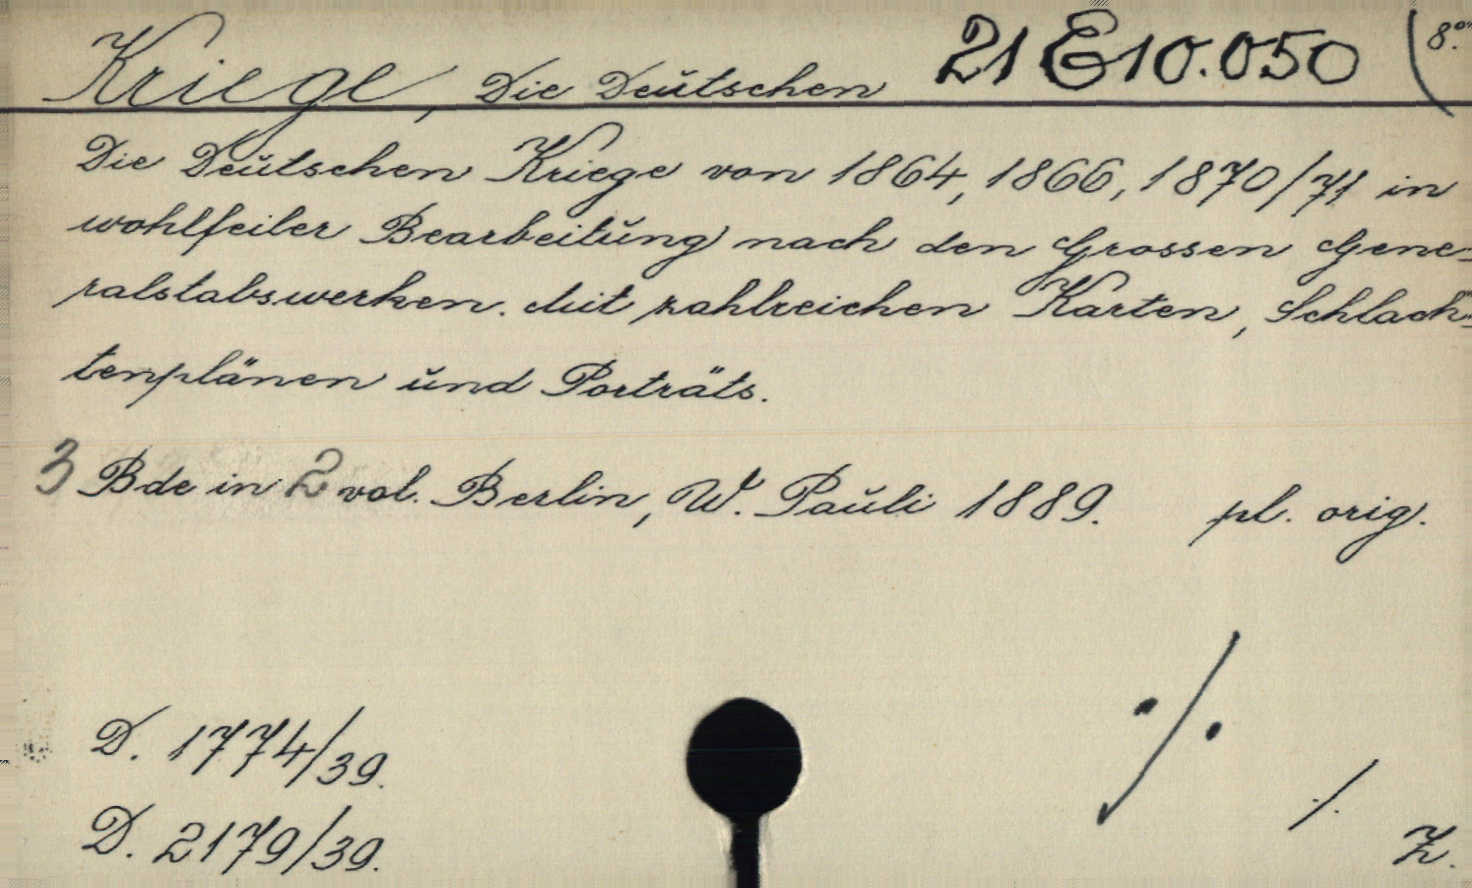 Kriege, Die Deutschen 21 E 10.050 (8.°
Die Deutschen Kriege von 1864, 1866, 1870/71 in
wohlfeiler Bearbeitung nach den Grossen Gene=
ralstabswerken. Mit zahlreichen Karten, Schlach=
tenplänen und Porträts.
3 Bde in 2 vol. Berlin, W. Pauli 1889. pl. orig.
D. 1774/39. ./.
D. 2179/39. ./. Z.